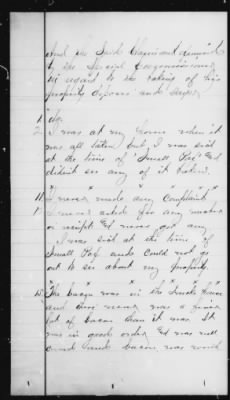 And the said Claimant answered
to the Special Commissioner
in regard to the taking of his
property deposes and says,
1 do.
2 I was at my home when it
was all taken but I was sick
at the time of "Small Pox" and
didn't see any of it taken.
11 "I never made any "Complaint"
I never asked for any voucher
or receipt and never got any
I was sick at the time of
Small Pox and could not go
out to see about my property.
15 "The bacon was in the Smoke House
and there never was a finer
lot of bacon than it was. It
was in good order and was well
cured and bacon was worth